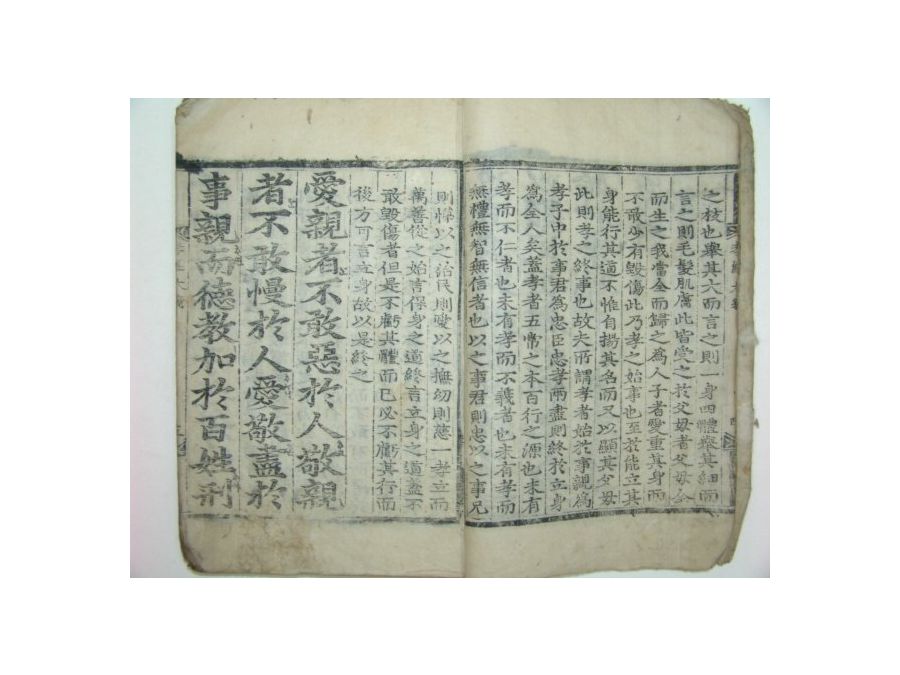 之枝也擧其大而言之則一身四體擧其細而
言之則毛髮肌膚此皆受之於父母者父母全
而生之我當全而歸之爲人子者愛重其身而
不敢少有毁傷此乃孝之始事也至於能立其
身能行其道不惟自揚其名而又以顯其父母
此則孝之終事也故夫所謂孝者始於事親爲
孝子中於事君爲忠臣忠孝兩盡則終於立身
爲全人矣蓋孝者五常之本百行之源也未有
孝而不仁者也未有孝而不義者也未有孝而
無禮無智無信者也以之事君則忠以之事兄
則悌以之治民則愛以之撫幼則慈一孝立而
萬善從之始言保身之道終言立身之道蓋不
敢毁傷者但是不虧其體而已必不虧其行而
後方可言立身故以是終之
愛親者不敢惡於人敬親
者不敢慢於人愛敬盡於
事親而德教加於百姓刑